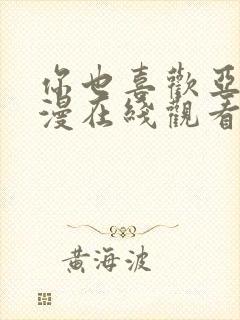 你也喜歡亞
漫在綫觀看
黃海波